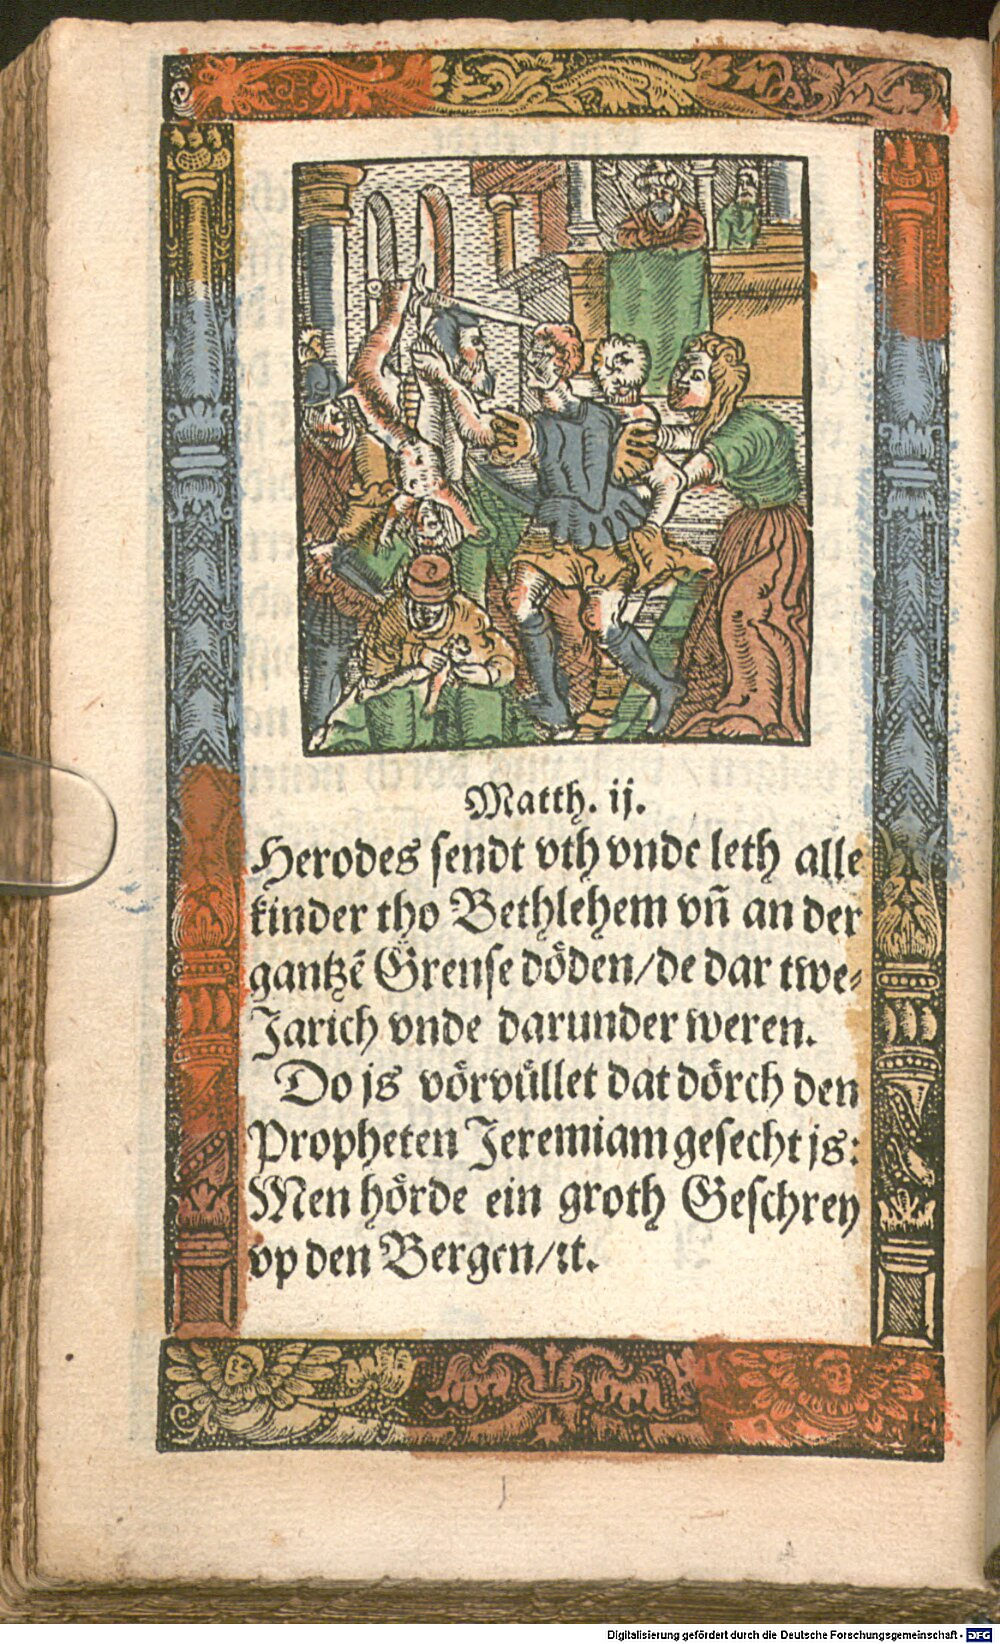 Matth. ij.
Herodes sendt vth vnde leth alle
kinder tho Bethlehem vñ an der
gantzẽ Grense döden/de dar twe-
Jarich vnde darunder weren.
Do is vörvüllet dat dörch den
Propheten Jeremiam gesecht is:
Men hörde ein groth Geschrey
vp den Bergen/ꝛt.
Digitalisierung gefördert durch die Deutsche Forschungsgemeinschaft - DFG